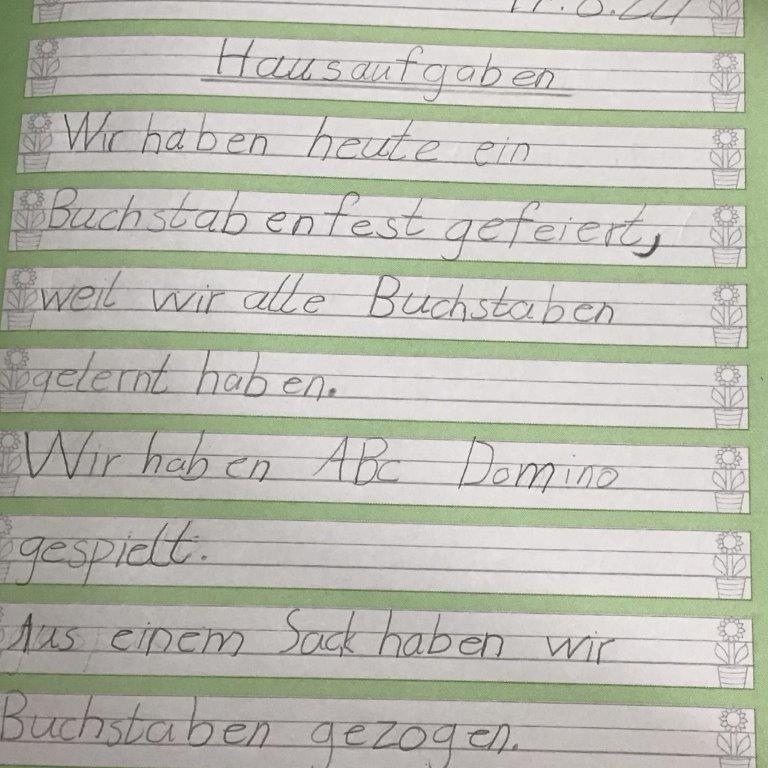 Hausaufgaben
Wir haben heute ein
Buchstabenfest gefeiert,
weil wir alle Buchstaben
gelernt haben.
Wir haben ABc Domino
gespielt.
Aus einem Sack haben wir
Buchstaben gezogen.